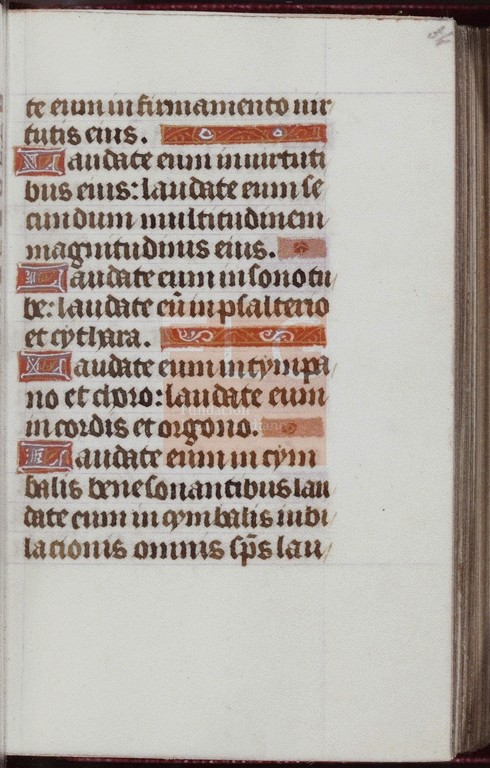 te eum in firmamento uir
tutis eius.
Laudate eum in uirtuti
bus eius: laudate eum se
cundum multitudinem
magnitudinis eius.
Laudate eum in sono tu
be: laudate eū in psalterio
et cythara.
Laudate eum in tympa
no et choro: laudate eum
in cordis et orgono.
Laudate eum in cym
balis bene sonantibus lau
date eum in cymbalis iubi
lationis omnis sp̄s lau
Fundación